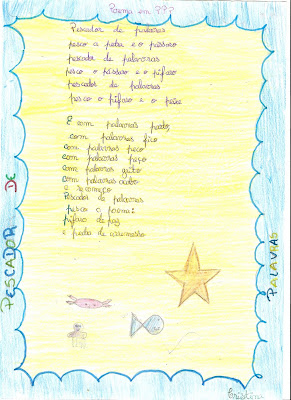 Poema em P??
Pescador de palavras
pesco a pedra e o pássaro
pescador de palavras
pesco o pássaro e o pífaro
pescador de palavras
pesco o pífaro e o peixe
E com palavras parto,
com palavras fico
com palavras peco
com palavras peço
com palavras grito
com palavras acabo
e recomeço
Pescador de palavras
pesco o poema:
pífaro de paz
e pedra de arremesso
PESCADOR DE
PALAVRAS
Cristina